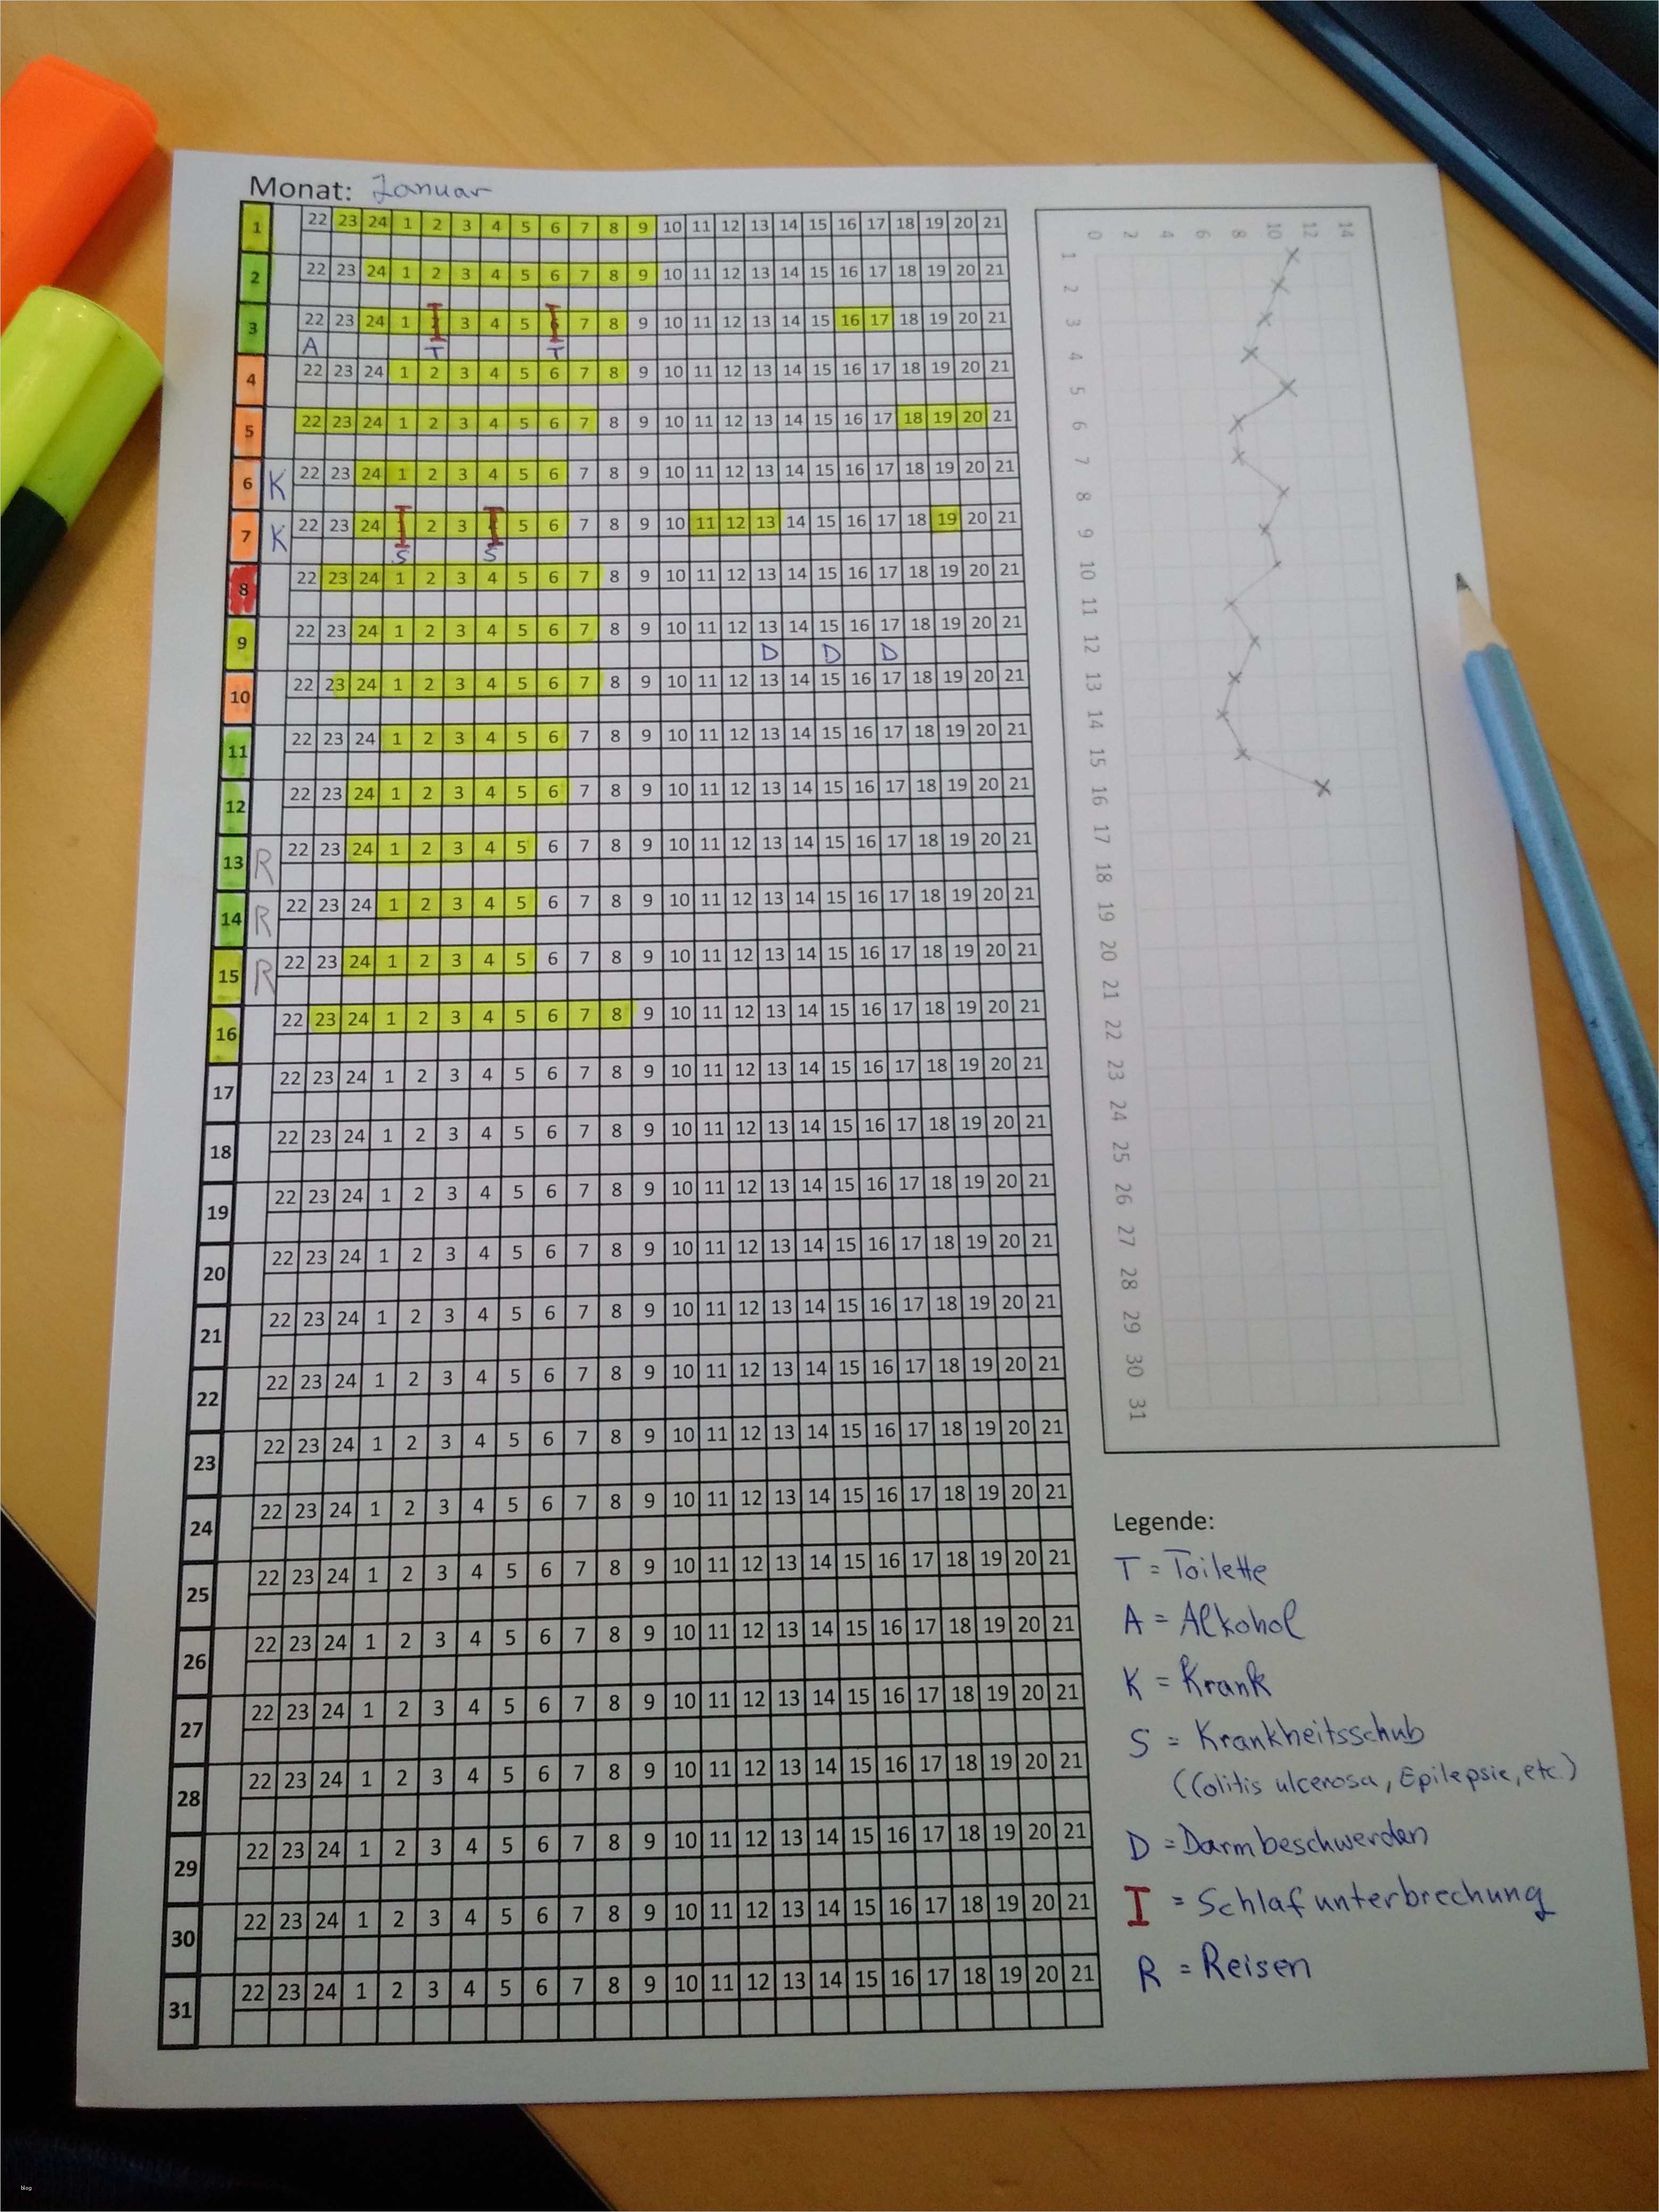 Monat: Januar
1 22 23 24 1 2 3 4 5 6 7 8 9 10 11 12 13 14 15 16 17 18 19 20 21
2 22 23 24 1 2 3 4 5 6 7 8 9 10 11 12 13 14 15 16 17 18 19 20 21
3 22 23 24 1 2 3 4 5 6 7 8 9 10 11 12 13 14 15 16 17 18 19 20 21
A T T
4 22 23 24 1 2 3 4 5 6 7 8 9 10 11 12 13 14 15 16 17 18 19 20 21
5 22 23 24 1 2 3 4 5 6 7 8 9 10 11 12 13 14 15 16 17 18 19 20 21
6 K 22 23 24 1 2 3 4 5 6 7 8 9 10 11 12 13 14 15 16 17 18 19 20 21
7 K 22 23 24 1 2 3 4 5 6 7 8 9 10 11 12 13 14 15 16 17 18 19 20 21
S S
8 22 23 24 1 2 3 4 5 6 7 8 9 10 11 12 13 14 15 16 17 18 19 20 21
9 22 23 24 1 2 3 4 5 6 7 8 9 10 11 12 13 14 15 16 17 18 19 20 21
D D D
10 22 23 24 1 2 3 4 5 6 7 8 9 10 11 12 13 14 15 16 17 18 19 20 21
11 22 23 24 1 2 3 4 5 6 7 8 9 10 11 12 13 14 15 16 17 18 19 20 21
12 22 23 24 1 2 3 4 5 6 7 8 9 10 11 12 13 14 15 16 17 18 19 20 21
13 R 22 23 24 1 2 3 4 5 6 7 8 9 10 11 12 13 14 15 16 17 18 19 20 21
14 R 22 23 24 1 2 3 4 5 6 7 8 9 10 11 12 13 14 15 16 17 18 19 20 21
15 R 22 23 24 1 2 3 4 5 6 7 8 9 10 11 12 13 14 15 16 17 18 19 20 21
16 22 23 24 1 2 3 4 5 6 7 8 9 10 11 12 13 14 15 16 17 18 19 20 21
17 22 23 24 1 2 3 4 5 6 7 8 9 10 11 12 13 14 15 16 17 18 19 20 21
18 22 23 24 1 2 3 4 5 6 7 8 9 10 11 12 13 14 15 16 17 18 19 20 21
19 22 23 24 1 2 3 4 5 6 7 8 9 10 11 12 13 14 15 16 17 18 19 20 21
20 22 23 24 1 2 3 4 5 6 7 8 9 10 11 12 13 14 15 16 17 18 19 20 21
21 22 23 24 1 2 3 4 5 6 7 8 9 10 11 12 13 14 15 16 17 18 19 20 21
22 22 23 24 1 2 3 4 5 6 7 8 9 10 11 12 13 14 15 16 17 18 19 20 21
23 22 23 24 1 2 3 4 5 6 7 8 9 10 11 12 13 14 15 16 17 18 19 20 21
24 22 23 24 1 2 3 4 5 6 7 8 9 10 11 12 13 14 15 16 17 18 19 20 21
25 22 23 24 1 2 3 4 5 6 7 8 9 10 11 12 13 14 15 16 17 18 19 20 21
26 22 23 24 1 2 3 4 5 6 7 8 9 10 11 12 13 14 15 16 17 18 19 20 21
27 22 23 24 1 2 3 4 5 6 7 8 9 10 11 12 13 14 15 16 17 18 19 20 21
28 22 23 24 1 2 3 4 5 6 7 8 9 10 11 12 13 14 15 16 17 18 19 20 21
29 22 23 24 1 2 3 4 5 6 7 8 9 10 11 12 13 14 15 16 17 18 19 20 21
30 22 23 24 1 2 3 4 5 6 7 8 9 10 11 12 13 14 15 16 17 18 19 20 21
31 22 23 24 1 2 3 4 5 6 7 8 9 10 11 12 13 14 15 16 17 18 19 20 21
0 2 4 6 8 10 12 14
1 2 3 4 5 6 7 8 9 10 11 12 13 14 15 16 17 18 19 20 21 22 23 24 25 26 27 28 29 30 31
Legende:
T = Toilette
A = Alkohol
K = Krank
S = Krankheitsschub
(Colitis ulcerosa, Epilepsie, etc.)
D = Darmbeschwerden
I = Schlafunterbrechung
R = Reisen
blog